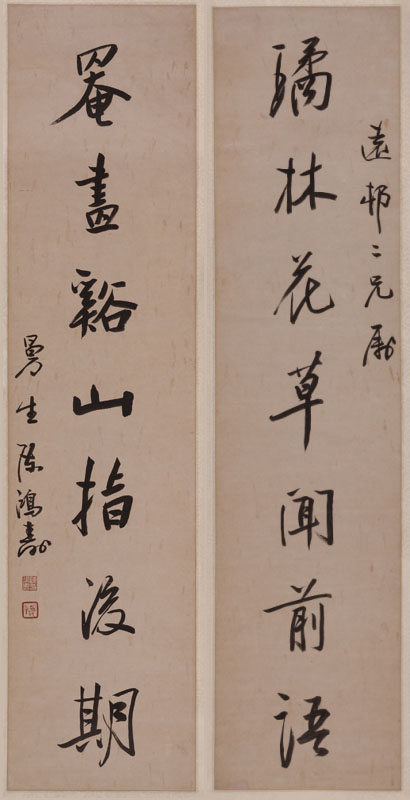 遠邨二兄屬
璚林花草聞前語
罨畫谿山指後期
曼生陳鴻壽